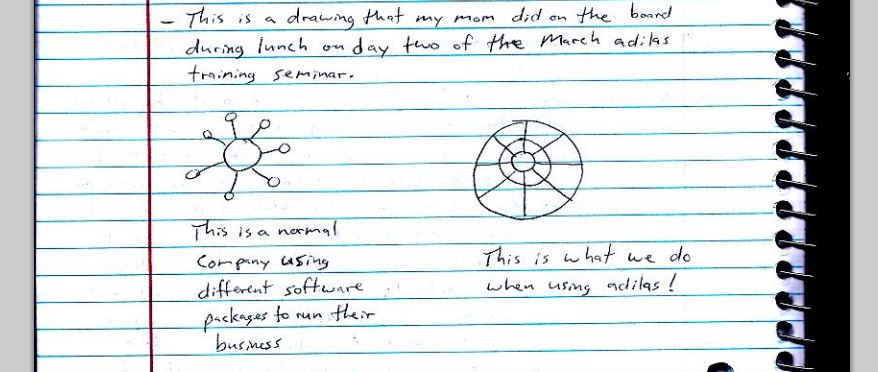 - This is a drawing that my mom did on the board
during lunch on day two of the March adilas
training seminar.
This is a normal
Company using
different software
packages to run their
business
This is what we do
when using adilas!